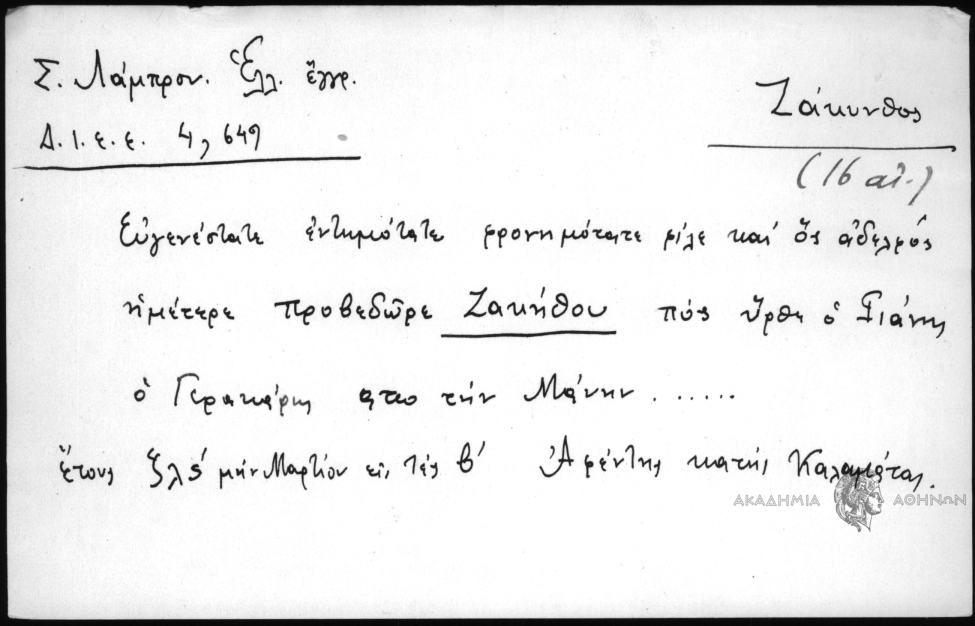 Σ. Λάμπρου. Ἑλλ. ἔγγρ.
Δ.Ι.Ε.Ε. 4, 649
Ζάκυνθος
(16 αἰ.)
Εὐγενέστατε ἐντιμότατε φρονημότατε φίλε καὶ ὅς ἀδελφός
ἡμέτερε προβεδῶρε Ζακήθου πώς ἦρθε ὁ Γιάνης
ὁ Γερακάρης απο τὴν Μάνην .......
ἔτους ζλς΄ μὴν Μαρτίου εἰς τές β΄ Ἀφέντης κατής Καλαμάτας.
ΑΚΑΔΗΜΙΑ ΑΘΗΝΩΝ